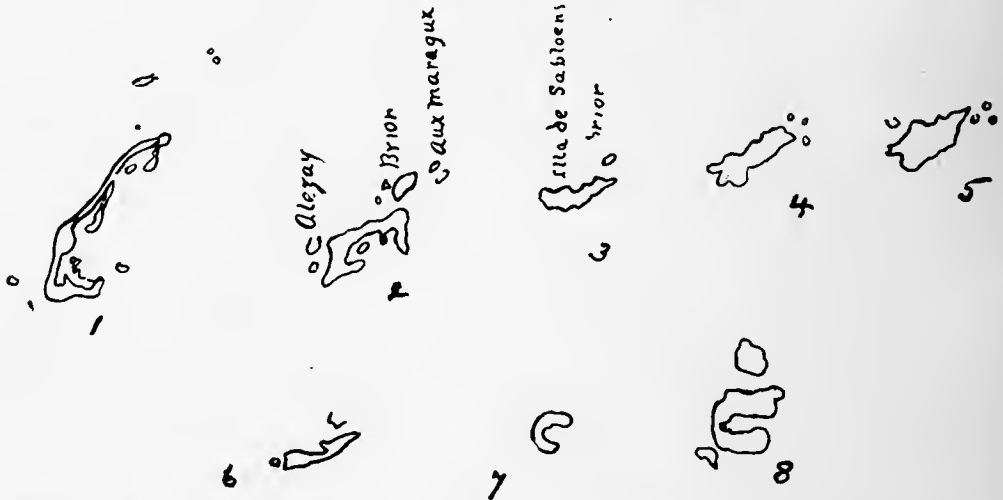 Alezay
Brior
Aux maragux
Illa de Sabloens
Brior
1
2
3
4
5
6
7
8